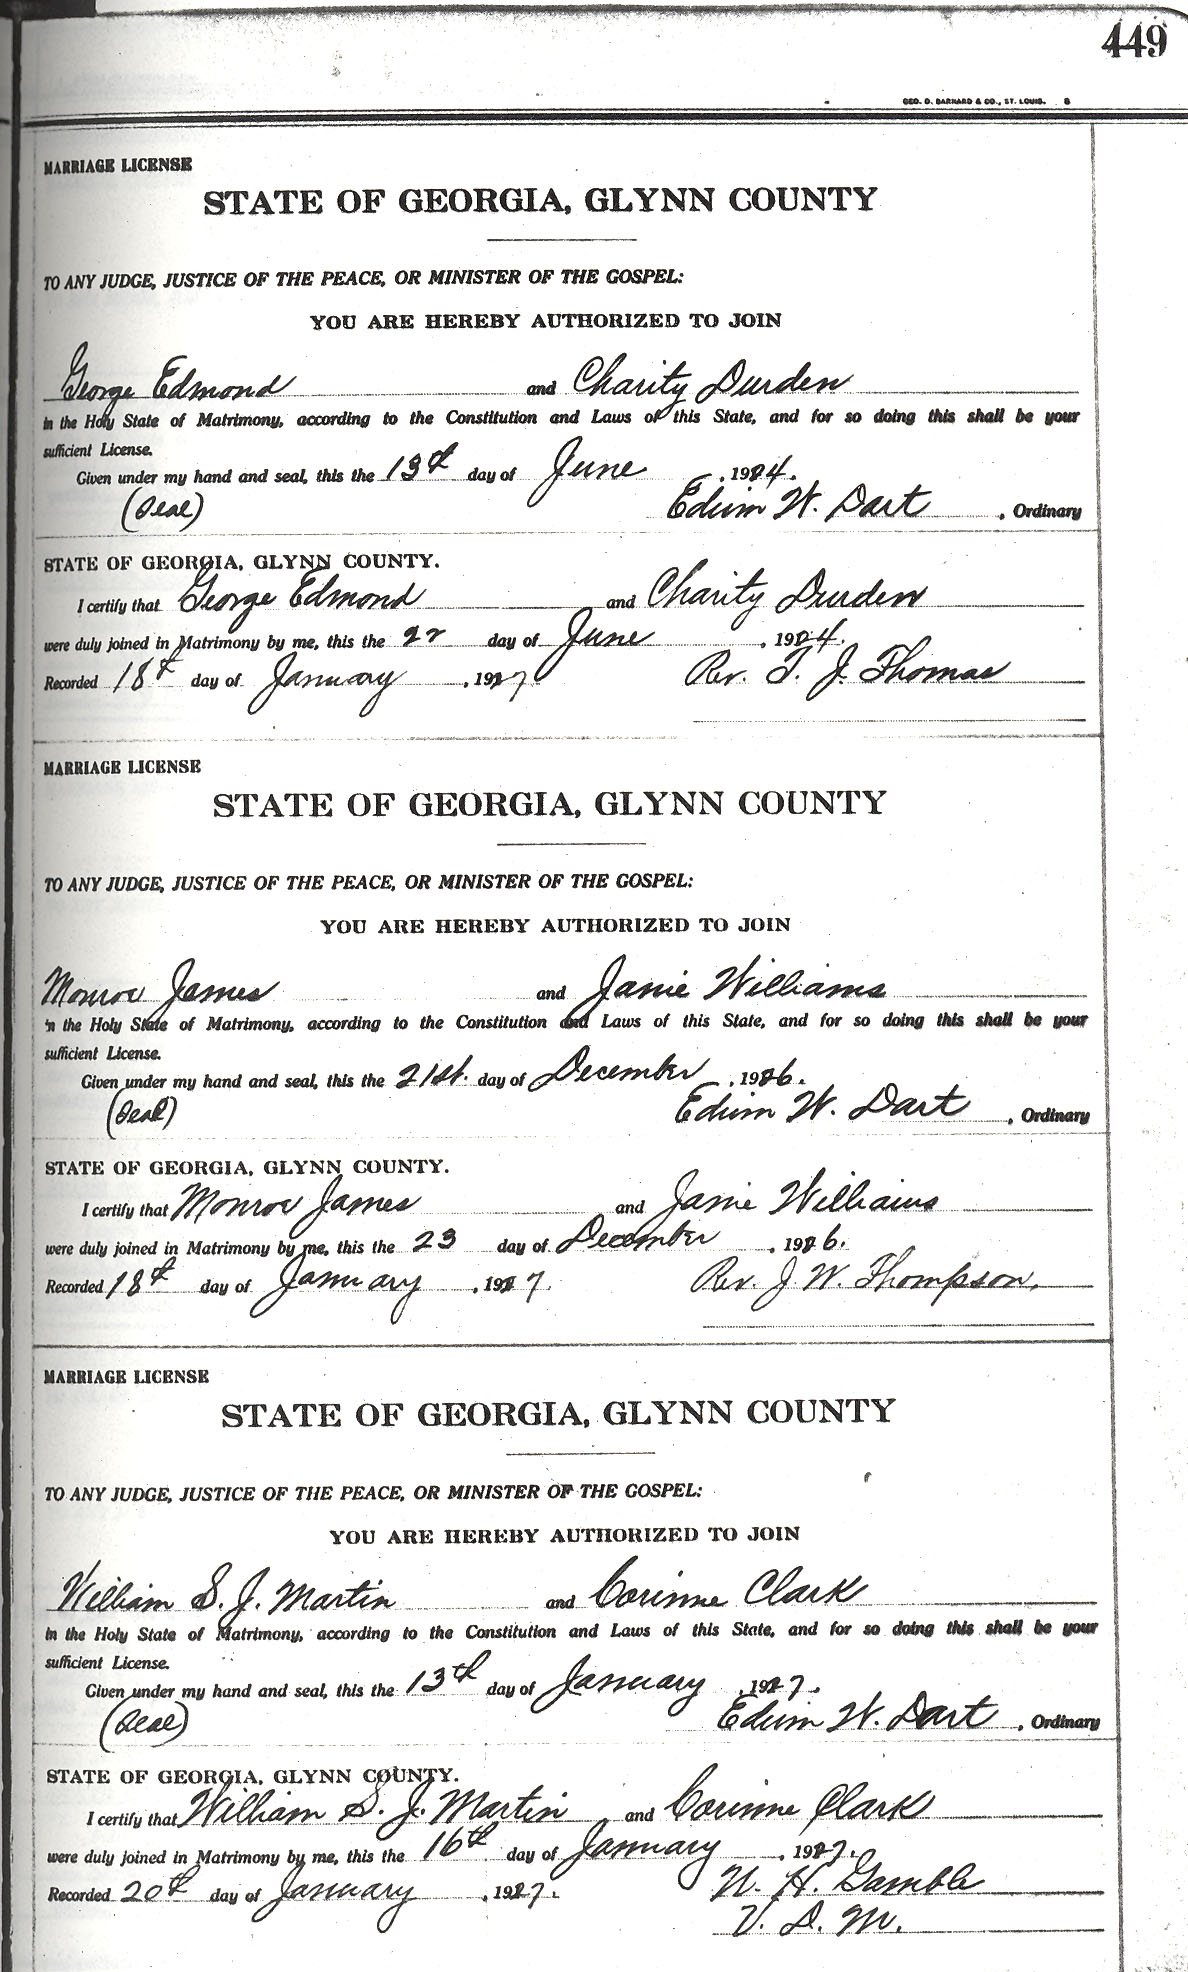 449
GEO. D. BARNARD & CO., ST. LOUIS. 8
MARRIAGE LICENSE
STATE OF GEORGIA, GLYNN COUNTY
TO ANY JUDGE, JUSTICE OF THE PEACE, OR MINISTER OF THE GOSPEL:
YOU ARE HEREBY AUTHORIZED TO JOIN
George Edmond and Charity Durden
in the Holy State of Matrimony, according to the Constitution and Laws of this State, and for so doing this shall be your
sufficient License.
Given under my hand and seal, this the 13th day of June, 1924.
(Seal) Edwin W. Dart, Ordinary
STATE OF GEORGIA, GLYNN COUNTY.
I certify that George Edmond and Charity Durden
were duly joined in Matrimony by me, this the 22 day of June, 1924.
Recorded 18th day of January, 1927. Rev. T. J. Thomas
MARRIAGE LICENSE
STATE OF GEORGIA, GLYNN COUNTY
TO ANY JUDGE, JUSTICE OF THE PEACE, OR MINISTER OF THE GOSPEL:
YOU ARE HEREBY AUTHORIZED TO JOIN
Monroe James and Janie Williams
in the Holy State of Matrimony, according to the Constitution and Laws of this State, and for so doing this shall be your
sufficient License.
Given under my hand and seal, this the 21st. day of December, 1926.
(Seal) Edwin W. Dart, Ordinary
STATE OF GEORGIA, GLYNN COUNTY.
I certify that Monroe James and Janie Williams
were duly joined in Matrimony by me, this the 23 day of December, 1926.
Recorded 18th day of January, 1927. Rev. J. W. Thompson.
MARRIAGE LICENSE
STATE OF GEORGIA, GLYNN COUNTY
TO ANY JUDGE, JUSTICE OF THE PEACE, OR MINISTER OF THE GOSPEL:
YOU ARE HEREBY AUTHORIZED TO JOIN
William S. J. Martin and Corinne Clark
in the Holy State of Matrimony, according to the Constitution and Laws of this State, and for so doing this shall be your
sufficient License.
Given under my hand and seal, this the 13th day of January, 1927.
(Seal) Edwin W. Dart, Ordinary
STATE OF GEORGIA, GLYNN COUNTY.
I certify that William S. J. Martin and Corinne Clark
were duly joined in Matrimony by me, this the 16th day of January, 1927.
Recorded 20th day of January, 1927. W. H. Gamble
V. D. M.